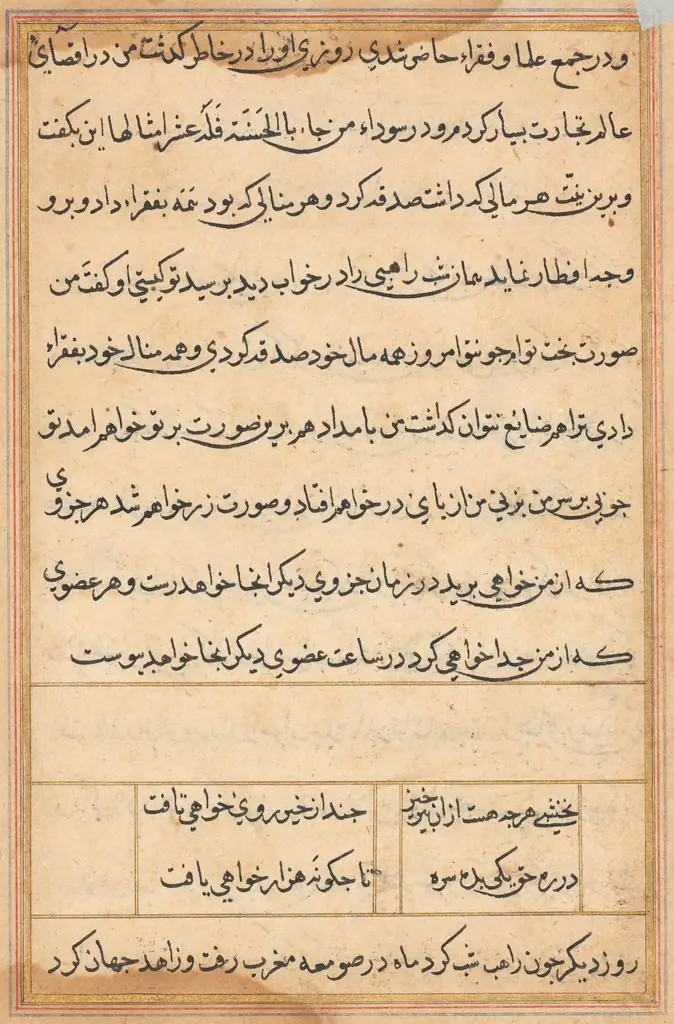 و در جمع علما و فقراء حاضر شدي روزي او را در خاطر كذشت من در اقصاي
عالم تجارت بسيار كردم و در سوداء من جاء بالحَسَنَة فَلَه عشر امثالها اين بكفت
و برين نيّت هر مالي كه داشت صدقه كرد و هر منالي كه بود همه بفقراء داد و برو
وجه افطار نماند همان شب راهبي را در خواب ديد برسيد تو كيستي او كفت من
صورت بخت توام جو نتو امروز همه مال خود صدقه كردي و همه منال خود بفقراء
دادي ترا هم ضايع نتوان كذاشت من بامداد هم برين صورت بر تو خواهم امد تو
جوبي بر سر من بزني من از باي در خواهم افتاد و صورت زر خواهم شد هر جزوي
كه از من خواهي بريد در زمان جزوي ديكر انجا خواهد رست و هر عضوي
كه از من جدا خواهي كرد در ساعت عضوي ديكر انجا خواهد بيوست
نخشبي هرجه هست ازان برخيز جند از خير روي خواهي تافت
در ره حق يكي بده سره تا جكونَه هزار خواهي يافت
روز ديكر جون راهب شب كرد ماه در صومعه مغرب رفت و زاهد جهان كرد